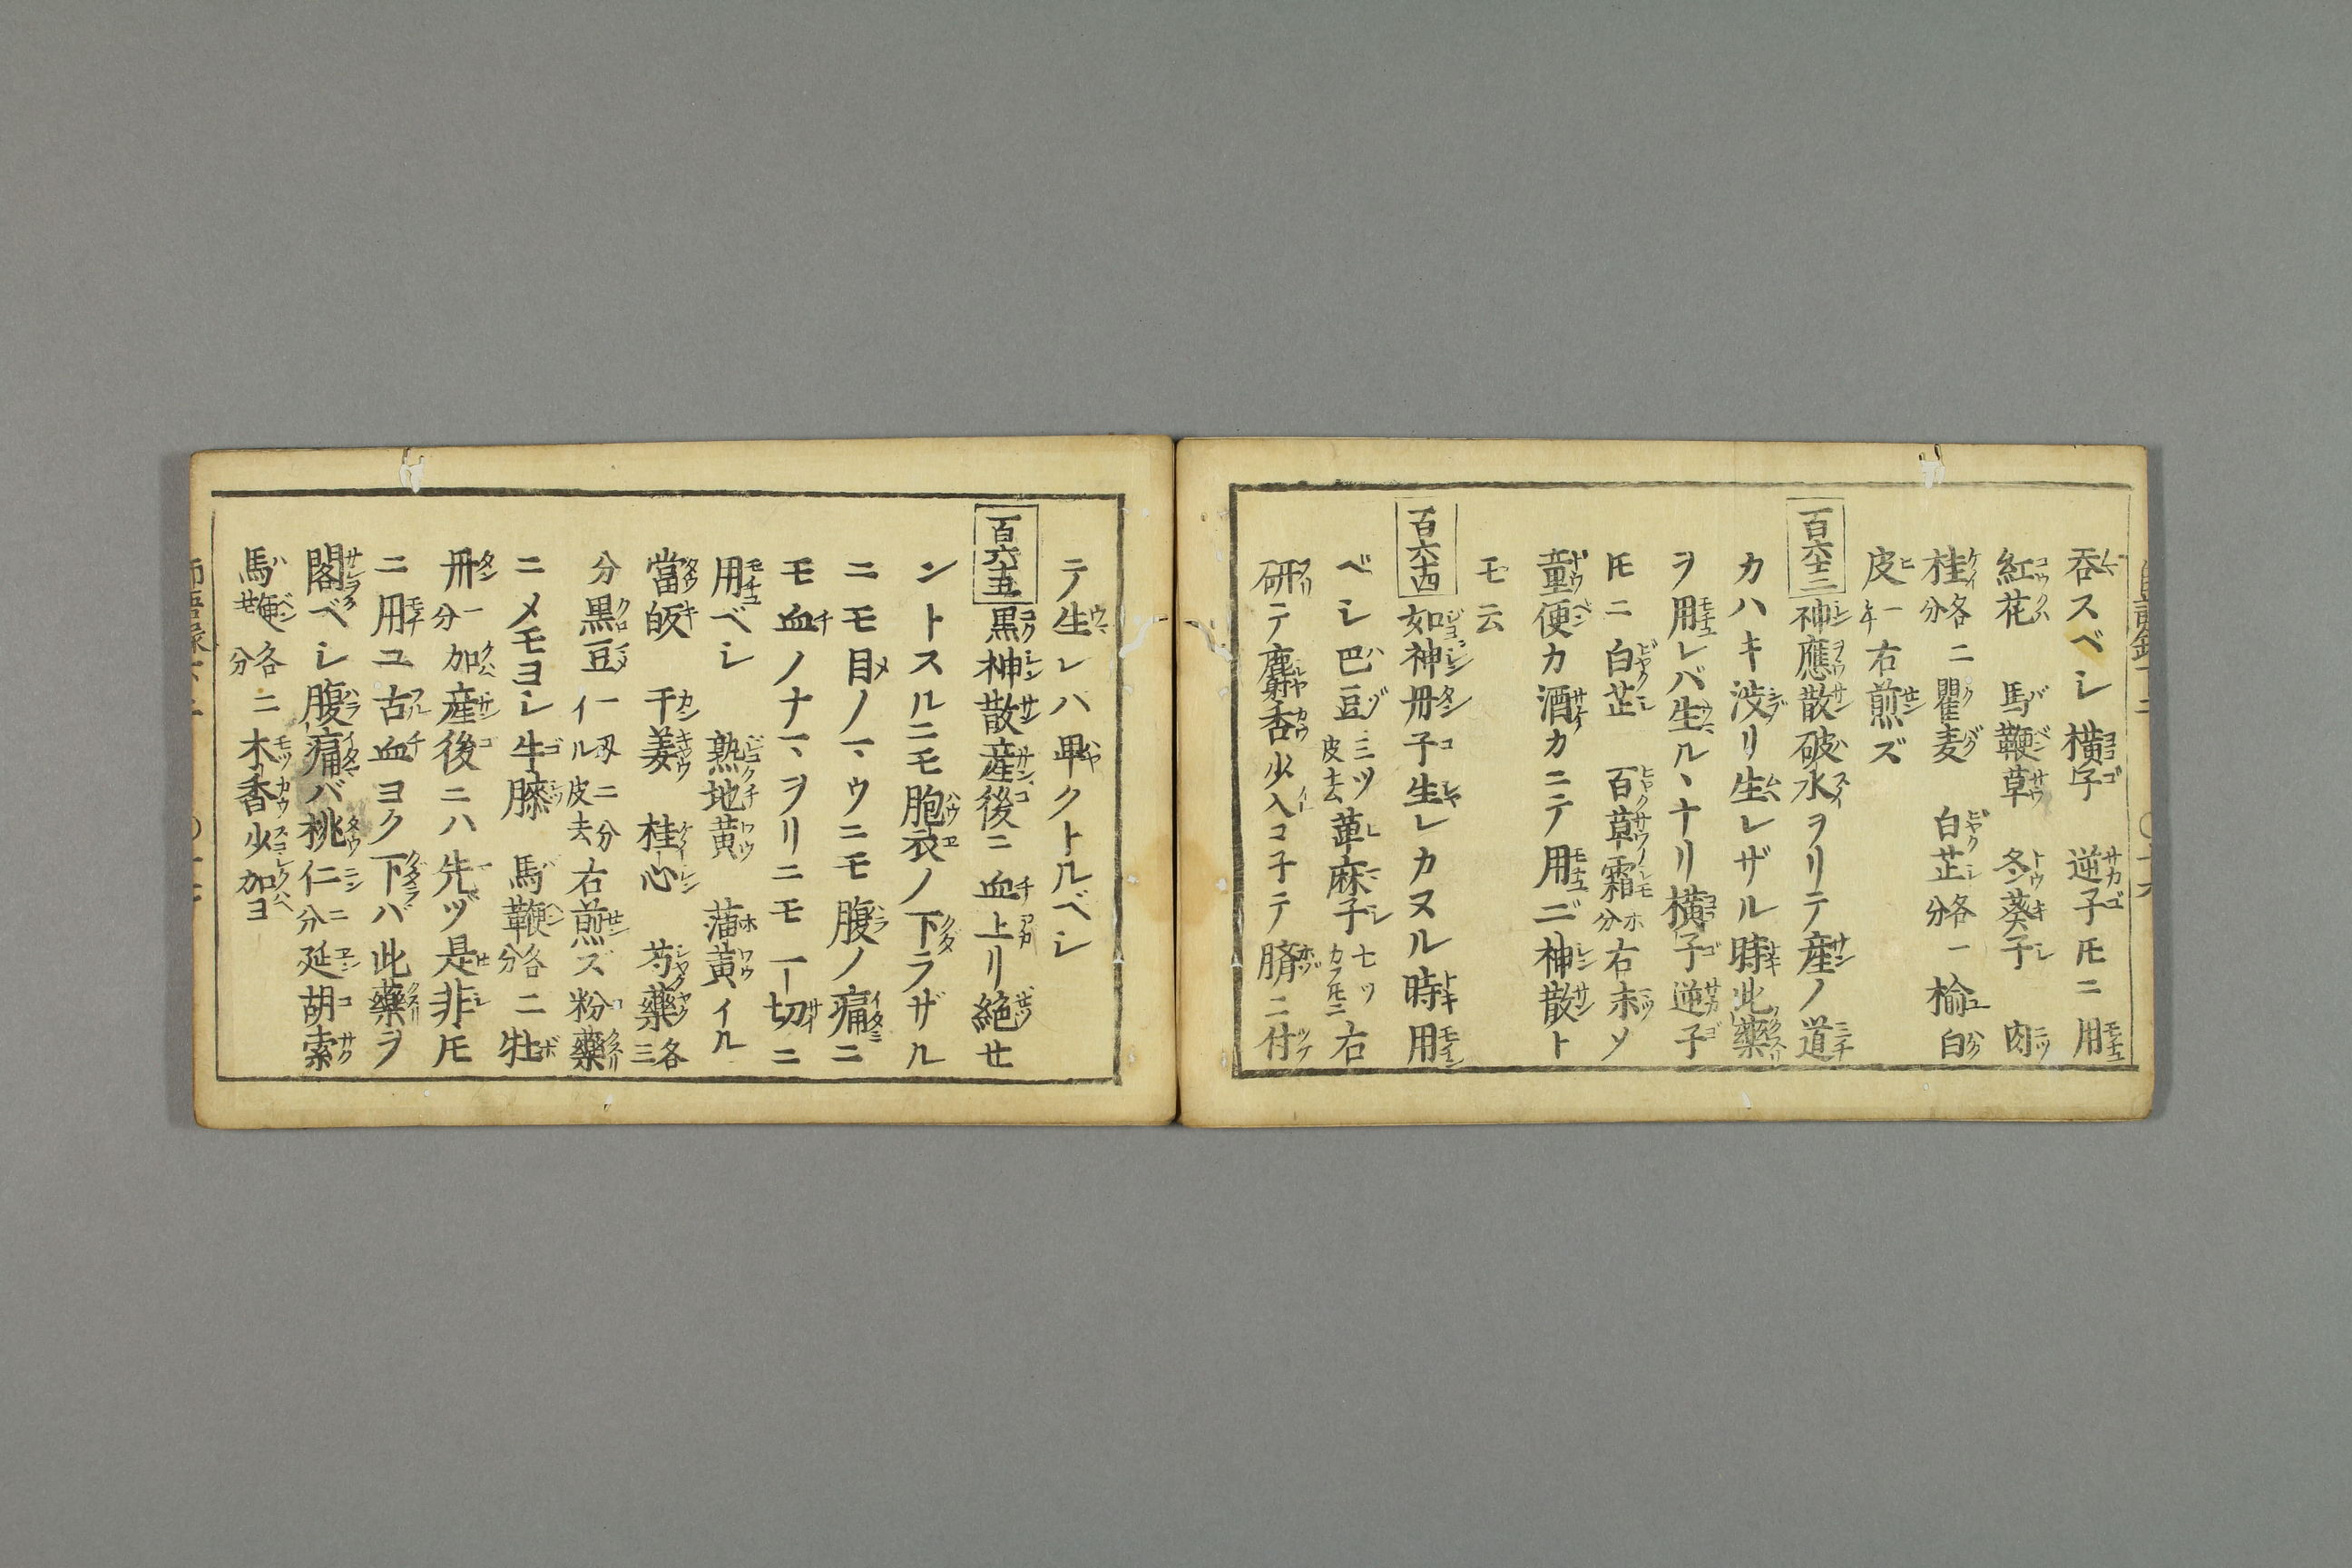 呑スベシ横字逆子圧ニ用
紅花 馬鞭草 冬葵子 肉
桂各分二瞿麦 白芷各分一楡白
皮一右煎ズ
百六十三神應散破水ヲリテ産ノ道
カハキ渋リ生レザル時此藥
ヲ用レバ生ルヽナリ横子逆子
圧ニ白芷 百草霜分右末ソ
童便カ酒カニテ用ユ神散ト
モ云
百六十四如神丹子生レカヌル時用
ベシ巴豆三ツ皮去蓖麻子七ツカラ圧ニ右
研テ麝香少入コ子テ臍ニ付
テ生レハ早クトルベシ
百六十五黒神散産後ニ血上リ絶セ
ントスルニモ胞衣ノ下ラザル
ニモ目ノマウニモ腹ノ痛ニ
モ血ノナヽヲリニモ一切ニ
用ベシ 熟地黄 蒲黄イル
當皈 干姜 桂心 芍藥各三
分黒豆一刄二分イル皮去右煎ズ粉藥
ニメモヨシ牛膝 馬鞭各分二牡
丹一分加産後ニハ先ヅ是非圧
ニ用ユ古血ヨク下バ此藥ヲ
閣ベシ腹痛バ桃仁二分延胡索
馬鞭艸各分二木香少加ヨ